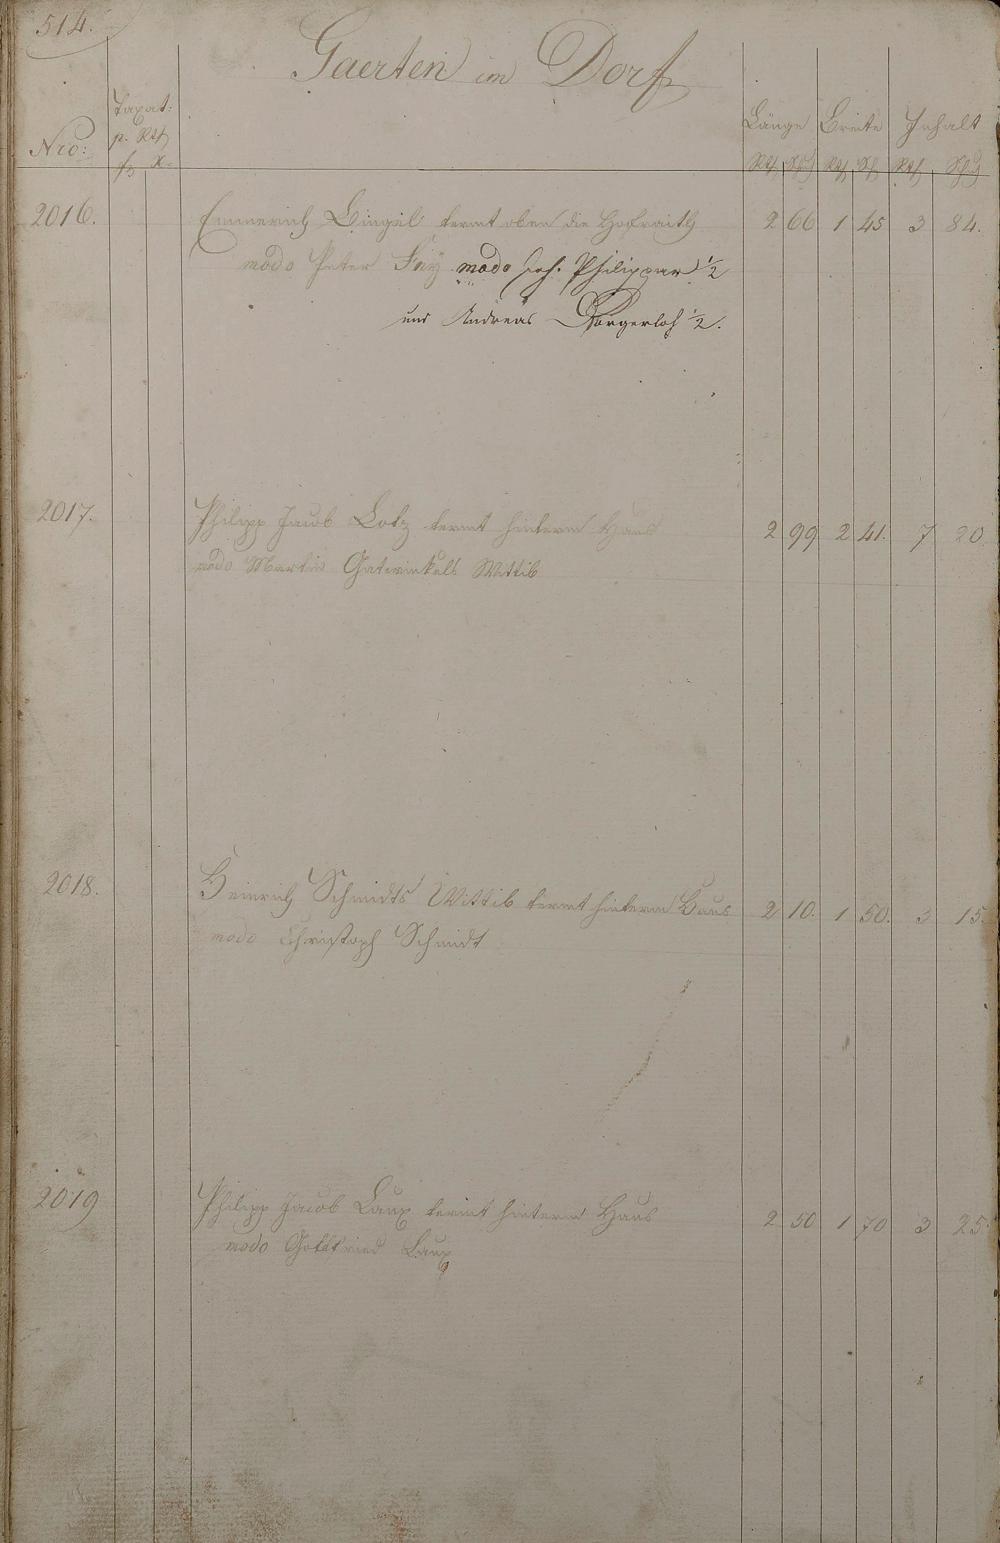 514.
Gaerten im Dorf
Nro: Taxat: p. Rth Länge Breite Inhalt
fl x Rth Sch Rth Sch Rth Sch
2016. Emmerich Bingel termt oben die Hofraith 2 66 1 45 3 84.
modo Peter Frey modo Joh. Philippar 1/2
und Andreas Dörgerloh 1/2.
2017. Philipp Jacob Lotz termt hinterm Haus 2 99 2 41. 7 20
modo Martin Gatwinkels Wittib
2018. Heinrich Schmidts Wittib termt hinterm Haus 2 10. 1 50. 3 15.
modo Christoph Schmidt
2019 Philipp Jacob Laux termt hinterm Haus 2 50 1 70 3 25.
modo Gottfried Laux